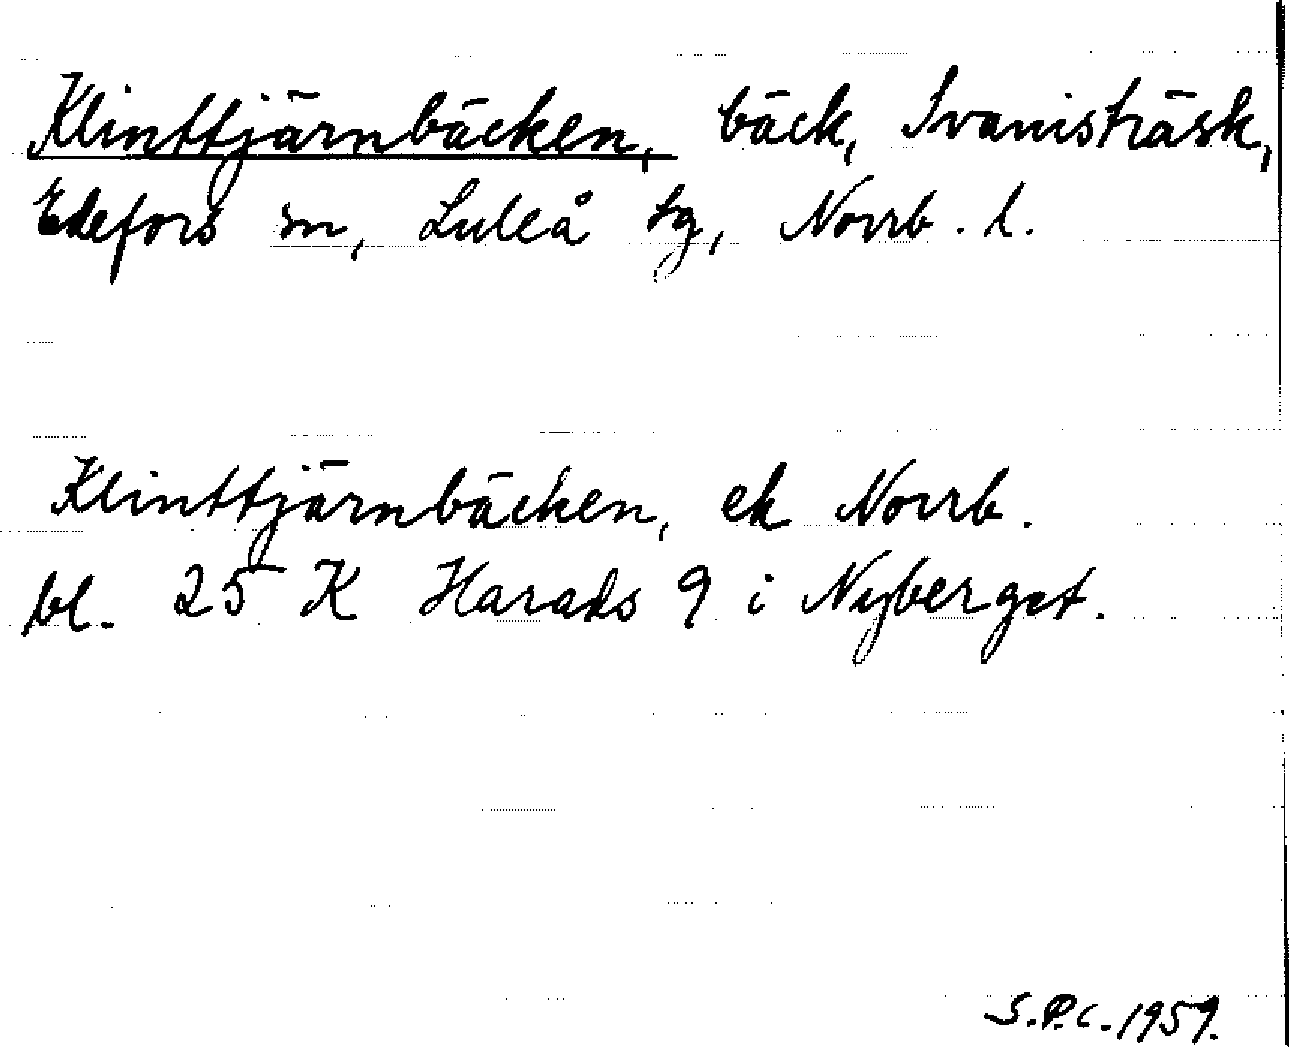 Klinttjärnbäcken, bäck, Svanisträsk,
Edefors sn, Luleå tg, Norrb. l.
Klinttjärnbäcken, ek Norrb.
bl. 25 K Harads 9 i Nyberget.
S.P.C. 1959.